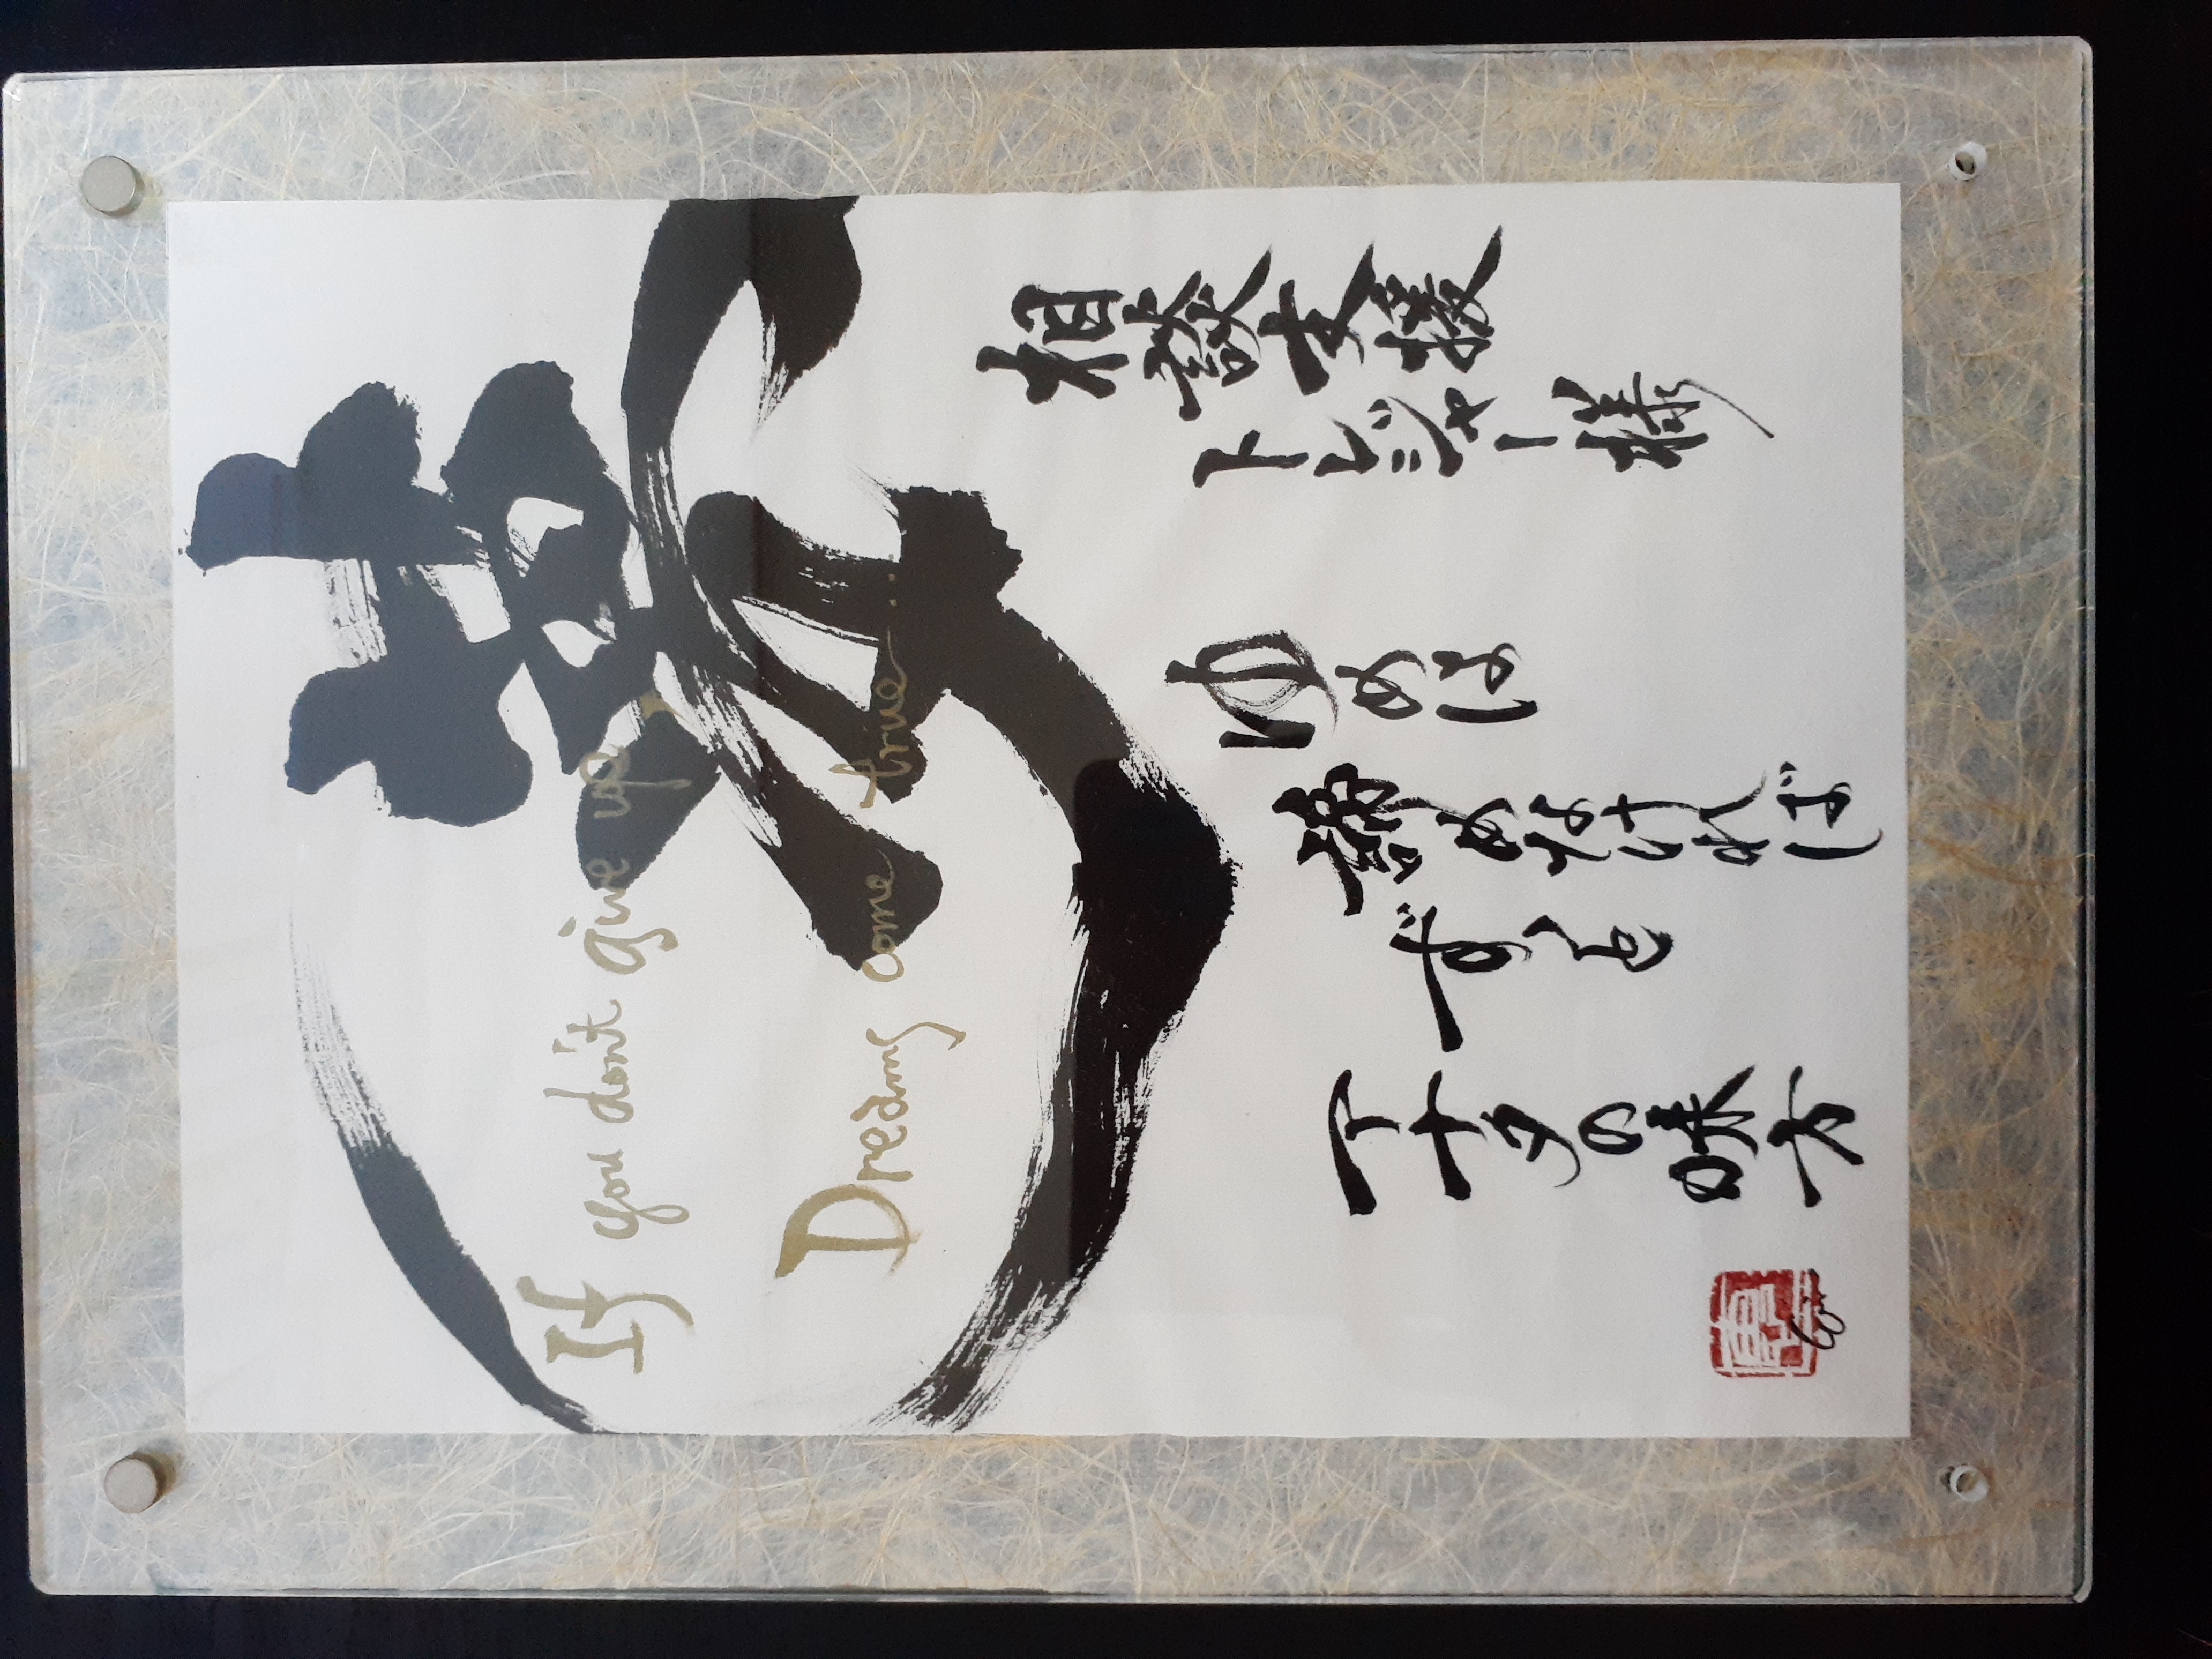 夢
If you don't give up,
Dreams come true...
相談支援
トレジャー様
ゆめは
諦めなければ
ずっと
アナタの味方